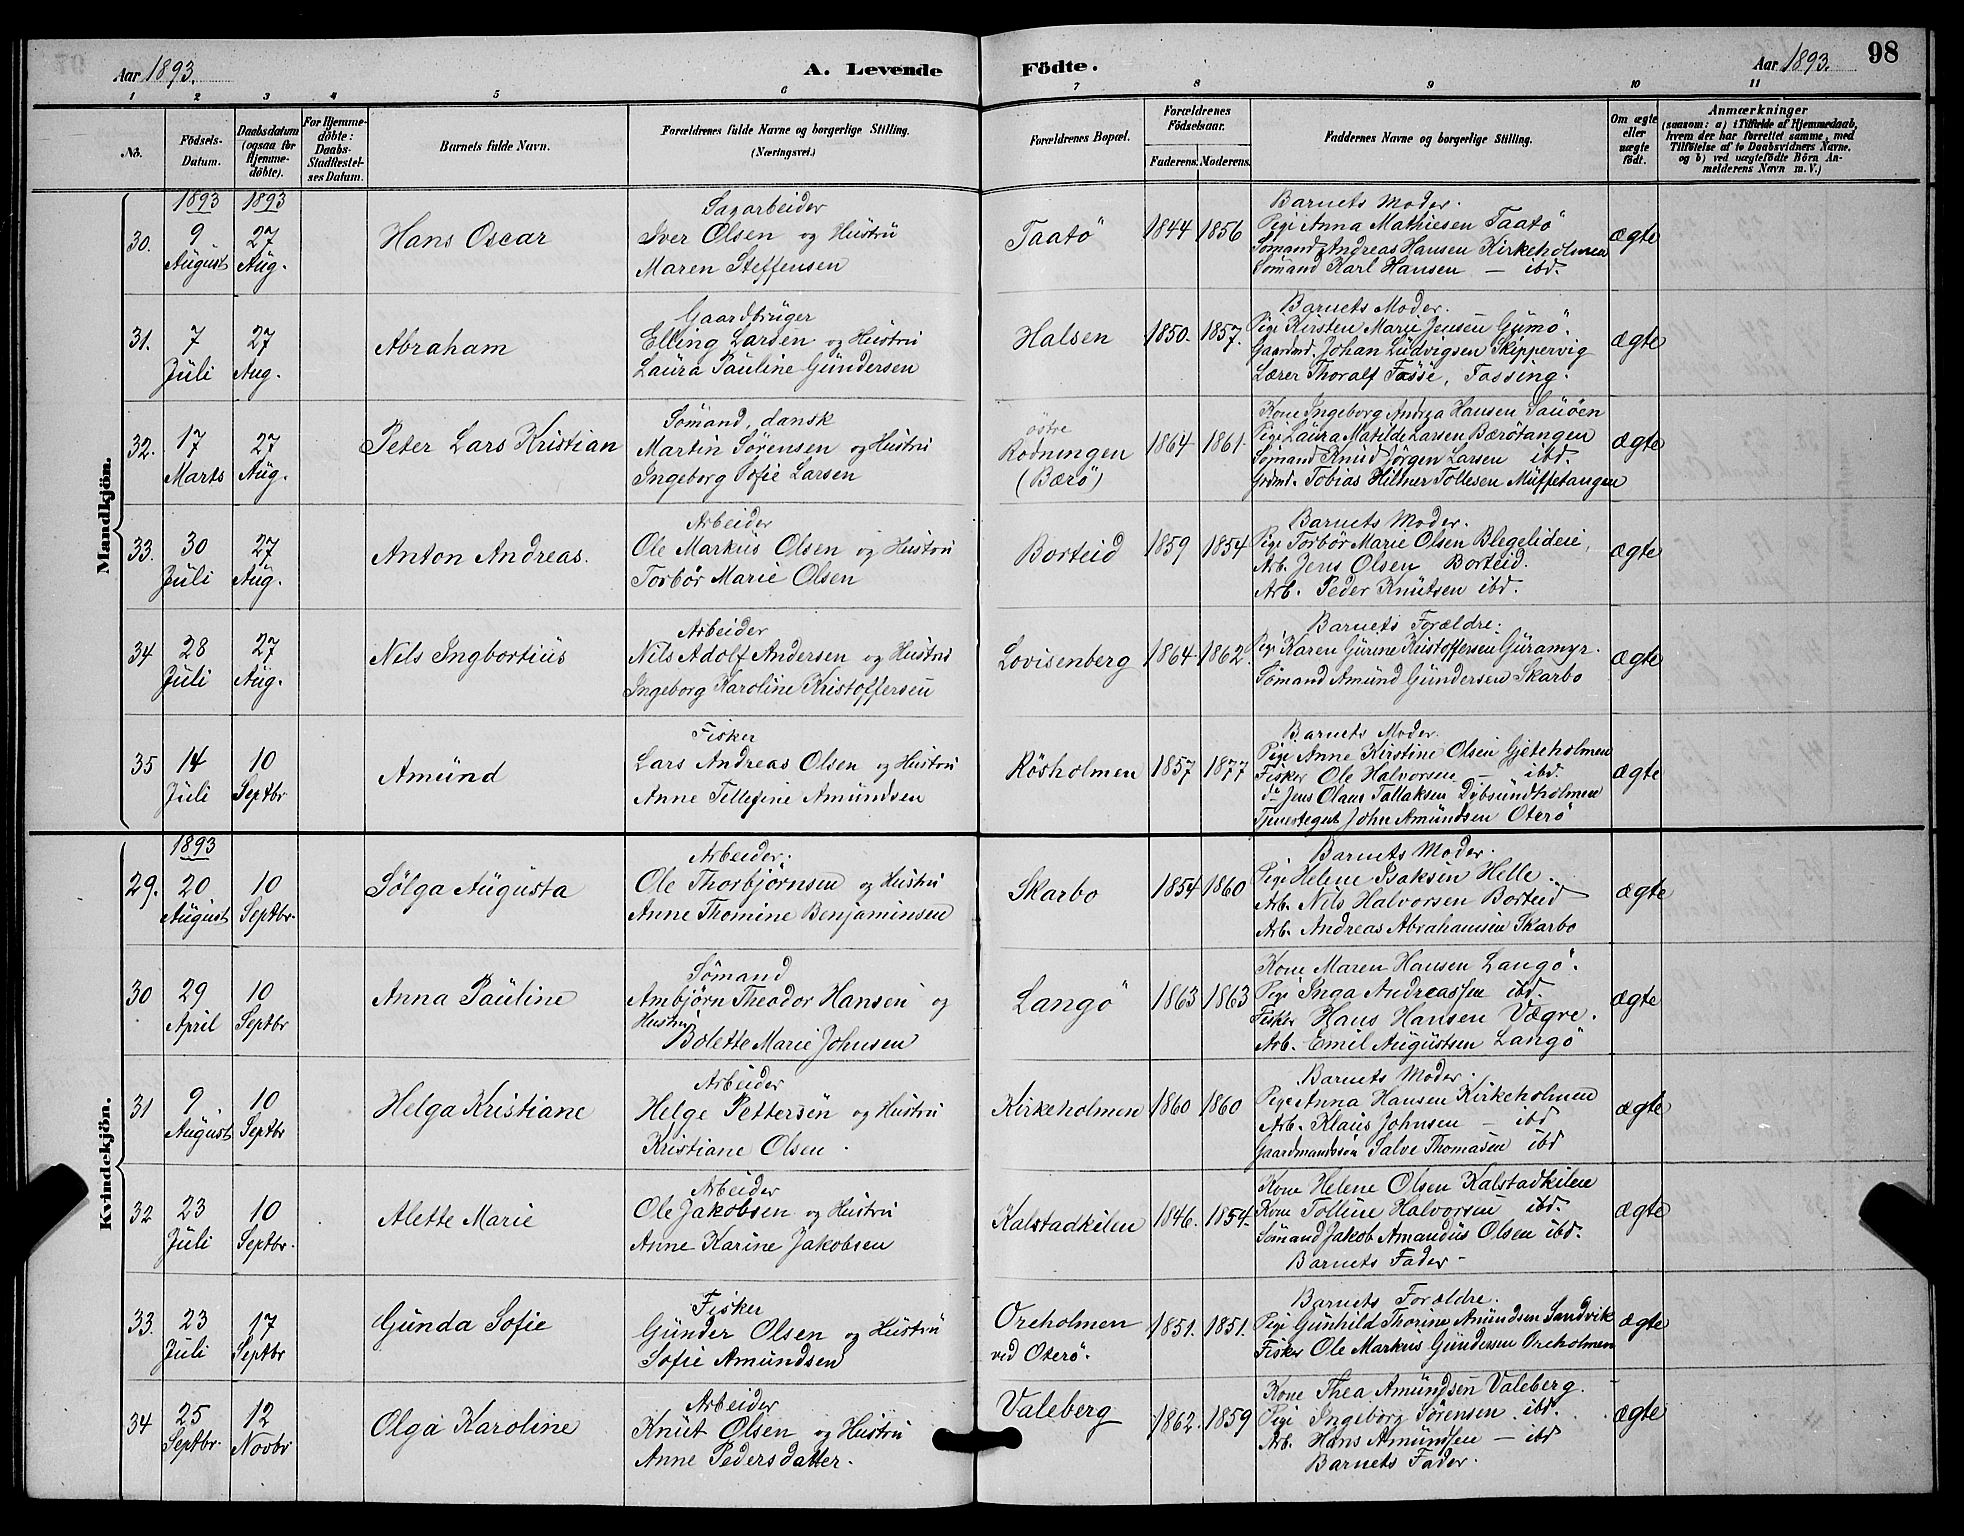 98
Aar 1893.
A. Levende
Födte.
Aar 1893.
1 2 3 4 5 6 7 8 9 10 11
No.
Födsels-Datum.
Daabsdatum (ogsaa for Hjemme-döbte).
For Hjemme-döbte: Daabs-Stadfæstel-ses Datum.
Barnets fulde Navn.
Forældrenes fulde Navne og borgerlige Stilling.
(Næringsvei.)
Forældrenes Bopæl.
Forældrenes Födselsaar.
Faderens. Moderens.
Faddernes Navne og borgerlige Stilling.
Om ægte eller uægte födt.
Anmærkninger
(saasom: a) i Tilfælde af Hjemmedaab, hvem der har forrettet samme, med Tilföielse af to Daabsvidners Navne, og b) ved uægtefödte Börn An-melderens Navn m. V.)
Mandkjön.
1893 1893
30. 9 August 27 Aug.
Hans Oscar
Sagarbeider
Iver Olsen og Hustru
Maren Steffensen
Taatö 1844 1856
Barnets Moder.
Pige Anna Mathiesen Taatö
Sömand Andreas Hansen Kirkeholmen
Sömand Karl Hansen — ibd.
ægte
31. 7 Juli 27 Aug.
Abraham
Gaardbruger
Elling Larsen og Hustru
Laura Pauline Gundersen
Halsen 1850. 1857.
Barnets Moder.
Pige Kirsten Marie Jensen Gumö.
Gaardmd. Johan Ludvigsen Skippervig
Lærer Thoralf Fosse, Fossing.
ægte
32. 17 Marts 27 Aug.
Peter Lars Kristian
Sömand, dansk
Martin Sörensen og Hustru
Ingeborg Sofie Larsen
östre
Rodningen
(Bærö)
1864 1861.
Kone Ingeborg Andrea Hansen Sauöen
Pige Laura Matilde Larsen Bærötangen
Sömand Knud Jörgen Larsen ibd.
Grdmd. Tobias Hilmer Tollesen Muffetangen
ægte
33. 30 Juli 27 Aug.
Anton Andreas.
Arbeider
Ole Markus Olsen og Hustru
Torbör Marie Olsen
Borteid 1859 1854
Barnets Moder.
Pige Torbör Marie Olsen Blegelideie,
Arb. Jens Olsen Borteid.
Arb. Peder Knutsen ibd.
ægte
34 28 Juli 27 Aug.
Nils Ingbortius
Arbeider
Nils Adolf Andersen og Hustru
Ingeborg Karoline Kristoffersen
Lovisenberg 1864 1862.
Barnets Forældre.
Pige Karen Gurine Kristoffersen Guramyr.
Sömand Amund Gundersen Skarbo
ægte
35 14 Juli 10 Septbr
Amund
Fisker
Lars Andreas Olsen og Hustru
Anne Tellefine Amundsen
Rösholmen 1857 1877
Barnets Moder.
Pige Anne Kirstine Olsen Gjeteholmen
Fisker Ole Halvorsen — ibd.
do Jens Olaus Tallaksen Dybsundholmen
Tjenestegut John Amundsen Oterö
ægte
Kvindekjön.
1893
29. 20 August 10 Septbr.
Sölga Augusta
Arbeider.
Ole Thorbjörnsen og Hustru
Anne Thomine Benjaminsen
Skarbo 1854 1860
Barnets Moder.
Pige Helene Isaksen Helle.
Arb. Nils Halvorsen Borteid
Arb. Andreas Abrahamsen Skarbo
ægte
30 29 April 10 Septbr
Anna Pauline
Sömand
Ambjörn Theodor Hansen og
Hustru
Bolette Marie Johnsen
Langö 1863 1863
Kone Maren Hansen Langö.
Pige Inga Andreassen ibd.
Fisker Hans Hansen Vægre.
Arb. Emil Augustsen Langö
ægte
31 9 August 10 Septbr
Helga Kristiane
Arbeider
Helge Pettersen og Hustru
Kristiane Olsen.
Kirkeholmen 1860 1860
Barnets Moder.
Pige Anna Hansen Kirkeholmen
Arb. Klaus Johnsen — ibd
Gaardmandssön Salve Thomasen ibd
ægte
32 23 Juli 10 Septbr.
Alette Marie
Arbeider
Ole Jakobsen og Hustru
Anne Karine Jakobsen
Kalstadkilen 1846. 1854.
Kone Helene Olsen Kalstadkilen
Kone Tolline Halvorsen ibd.
Sömand Jakob Amandus Olsen ibd.
Barnets Fader -
ægte
33. 23 Juli 17 Septbr
Gunda Sofie
Fisker
Gunder Olsen og Hustru
Sofie Amundsen
Oreholmen
ved Oterö.
1851. 1851.
Barnets Forældre.
Pige Gunhild Thorine Amundsen Sandvik
Fisker Ole Markus Gundersen Oreholmen
ægte
34 25 Septbr. 12 Novbr
Olga Karoline
Arbeider
Knut Olsen og Hustru
Anne Pedersdatter.
Valeberg 1862. 1859
Kone Thea Amundsen Valeberg.
Pige Ingeborg Sörensen ibd.
Arb. Hans Amundsen — ibd
Barnets Fader.
ægte